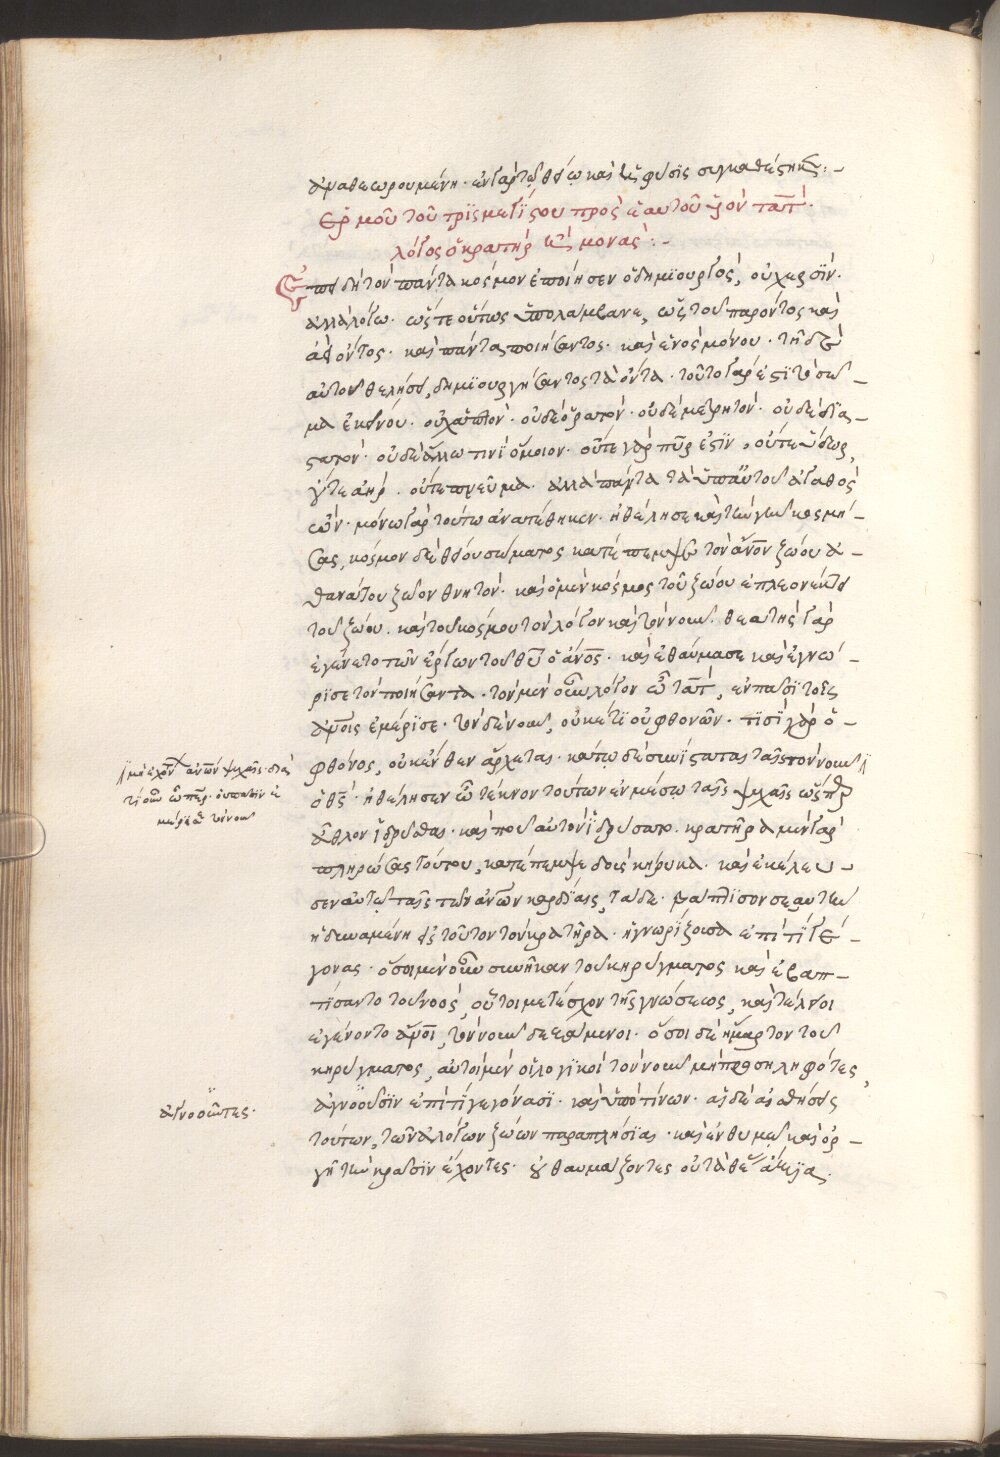 ἀναθεωρουμένη· ἐν γὰρ τῷ θείῳ καὶ ἡ φύσις συγκαθέστηκεν:–
Ἑρμοῦ τοῦ τρισμεγίστου πρὸς ἑαυτοῦ υἱὸν τάτ·
λόγος ὁ κρατὴρ ἢ μονάς:–
Ἐπειδὴ τὸν πάντα κόσμον ἐποίησεν ὁ δημιουργός, οὐ χερσὶν·
ἀλλὰ λόγῳ· ὥστε οὕτως ὑπολάμβανε, ὡς τοῦ παρόντος καὶ
ἀεὶ ὄντος· καὶ πάντα ποιήσαντος· καὶ ἑνὸς μόνου· τῇ δὲ
αὐτοῦ θελήσει, δημιουργήσαντος τὰ ὄντα· τοῦτο γάρ ἐστι τὸ σῶ–
μα ἐκείνου· οὐχ ἁπτὸν· οὐδὲ ὁρατὸν· οὐδὲ μετρητὸν· οὐδὲ δια–
στατὸν· οὐδὲ ἄλλῳ τινὶ ὅμοιον· οὔτε γὰρ πῦρ ἐστὶν, οὔτε ὕδωρ,
οὔτε ἀὴρ· οὔτε πνεῦμα· ἀλλὰ πάντα τὰ ὑπ' αὐτοῦ ἀγαθὸς
ὤν· μόνῳ γὰρ τούτῳ ἀνατέθηκεν· ἠθέλησε καὶ τὴν γῆν κοσμή–
σας, κόσμον δὲ θείου σώματος κατέπεμψε τὸν ἄνον ζώου ἀ–
θανάτου ζῶον θνητὸν· καὶ ὁ μὲν κόσμος τοῦ ζώου ἐπλεονέκτει
τοῦ ζώου· καὶ τοῦ κόσμου τὸν λόγον καὶ τὸν νοῦν· θεατὴς γὰρ
ἐγένετο τῶν ἔργων τοῦ θῦ ὁ ἄνος· καὶ ἐθαύμασε καὶ ἐγνώ–
ρισε τὸν ποιήσαντα· τὸν μὲν οὖν λόγον ὦ τάτ, ἐν πᾶσι τοῖς
ἀνοις ἐμέρισε· τὸν δὲ νοῦν, οὐκέτι οὐ φθονῶν· τισὶ γὰρ ὁ–
φθόνος, οὐκ ἔνθεν ἄρχεται· κάτω δὲ συνίσταται ταῖς τὸν νοῦν
ὁ θς· ἠθέλησεν ὦ τέκνον τοῦτον ἐν μέσῳ ταῖς ψυχαῖς ὥσπερ
ἆθλον ἱδρύσθαι· καὶ ποῦ αὐτὸν ἱδρύσατο· κρατῆρα μὲν γὰρ
πληρώσας τούτου, κατέπεμψε δοὺς κήρυκα· καὶ ἐκέλευ–
σεν αὐτῷ ταῖς τῶν ἀνων καρδίαις, τάδε· βάπτισον σεαυτὴν
ἡ δυναμένη εἰς τοῦτον τὸν κρατῆρα· ἡ γνωρίζουσα ἐπὶ τί γέ–
γονας· ὅσοι μὲν οὖν συνῆκαν τοῦ κηρύγματος καὶ ἐβαπ–
τίσαντο τοῦ νοός, οὗτοι μετέσχον τῆς γνώσεως, καὶ τέλειοι
ἐγένοντο ἀνοι, τὸν νοῦν δεξάμενοι· ὅσοι δὲ ἥμαρτον τοῦ
κηρύγματος, αὐτοὶ μὲν οἱ λογικοὶ τὸν νοῦν μὴ προσηληφότες,
ἀγνοοῦσιν ἐπὶ τί γεγόνασι· καὶ ὑπὸ τίνων· αἱ δὲ αἰσθήσεις
τούτων, τῶν ἀλόγων ζώων παραπλήσιαι· καὶ ἐν θυμῷ καὶ ὀρ–
γῇ τὴν κρᾶσιν ἔχοντες· οὐ θαυμάζοντες οὐ τὰ θέας ἄξια.
μὴ ἐχόντων ἀνων ψυχαῖς· διὰ
τί οὖν ὦ περ· οὐ πᾶσιν ἐ
μέρισε τὸν νοῦν
ἀγνοοῦντες·